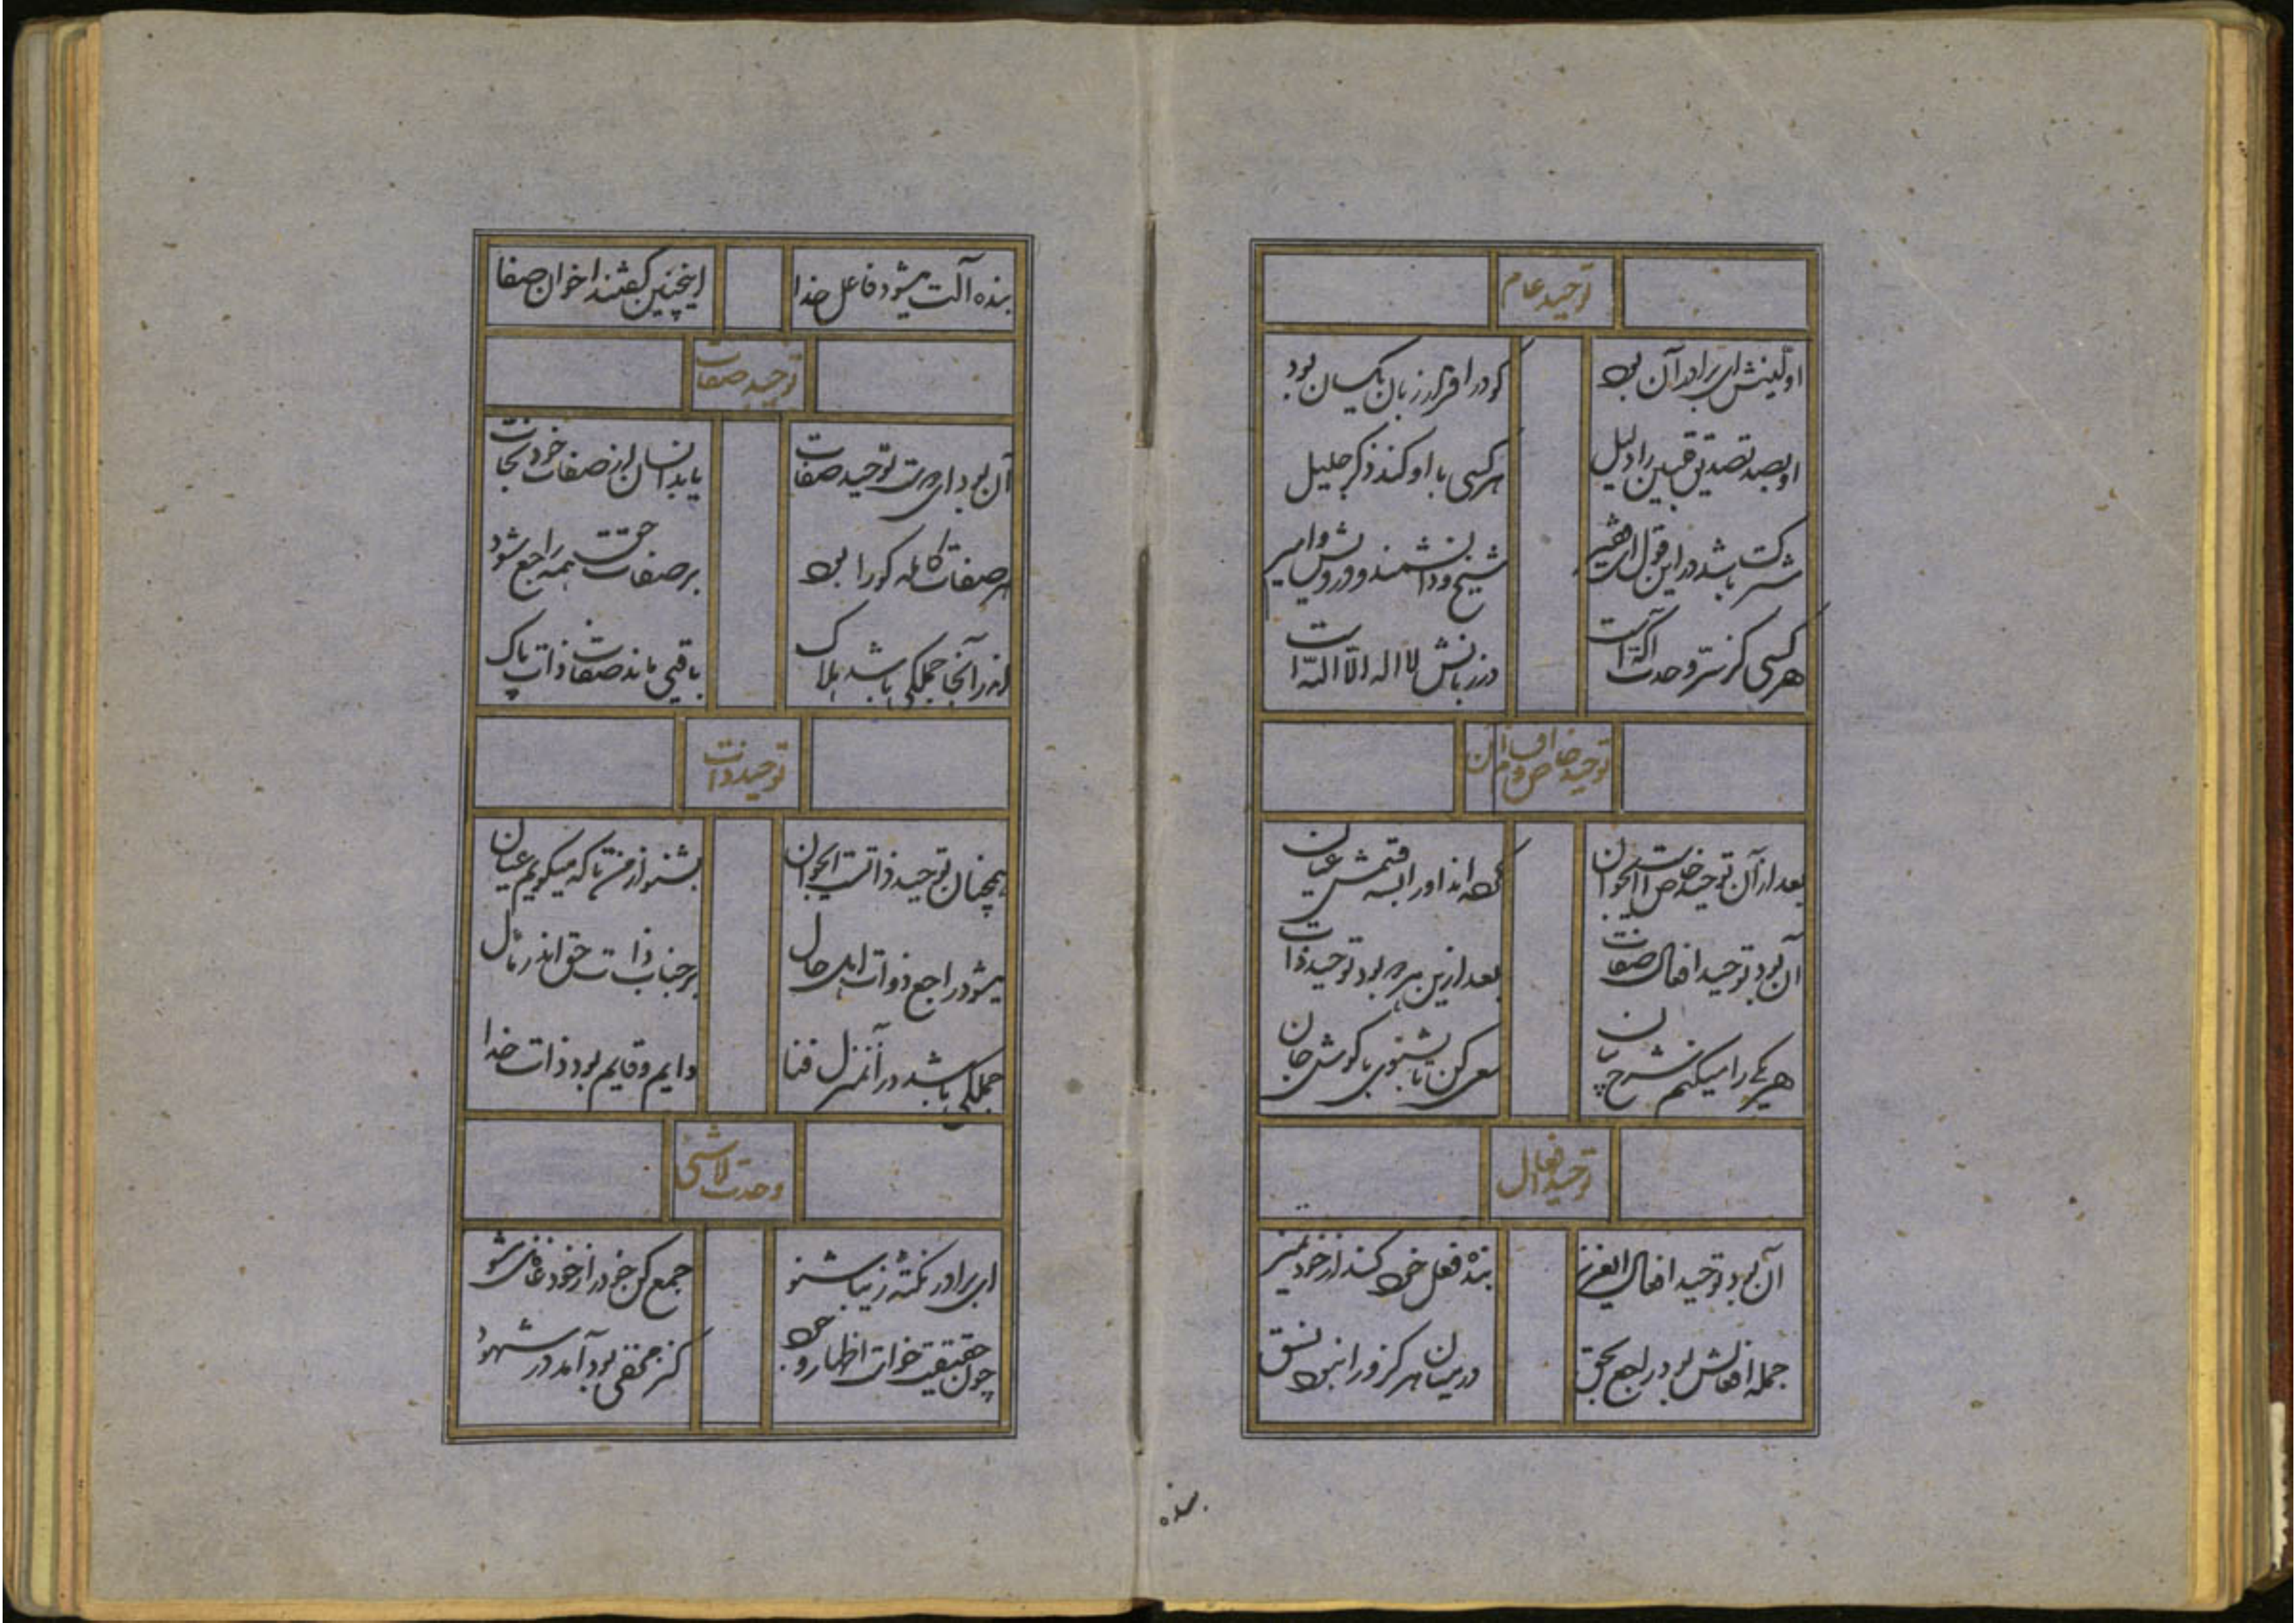 توحید عام
اولینش ای برادر آن بود
کو در اقرار زبان یکسان بود
او بصد تصدیق قبین را دلیل
هر کسی با او کند ذکر جلیل
شرکت باشد در این قول ای فقیر
شیخ و دانشمند و درویش و امیر
هر کسی کز سر وحدت آگه است
در زبانش لا اله الا الله است
توحید خاص و اقسام آن
بعد از آن توحید خاص است ایجوان
کرده‌اند او را سه قسمش عیان
آن بود توحید افعال صفات
بعد ازین هر دو بود توحید ذات
هر یکی را میکنم شرح بیان
سعی کن تا بشنوی با گوش جان
توحید افعال
آن بود توحید افعال ایعزیز
بنده فعل خود کند از خود تمیز
جمله افعالش بود راجع بحق
در میان هرگز ورا نبود نسق
بنده
بنده آلت میشود فاعل خدا
اینچنین گفتند اخوان صفا
توحید صفات
آن بود ای دوست توحید صفات
یابد انسان از صفات خود نجات
هر صفات کامله کورا بود
بر صفات حق همه راجع شود
اندر آنجا جملگی باشد هلاک
باقی ماند صفات ذات پاک
توحید ذات
همچنان توحید ذاتست ایجوان
بشنو از من تا که میگویم عیان
میشود راجع ذوات اهل حال
بر جناب ذات حق اندر مآل
جملگی باشد در آنمنزل فنا
دایم و قایم بود ذات خدا
وحدت لاشی
ای برادر نکته زیبا شنو
جمع کن خود را از خود غافل مشو
چون حقیقت خواست اظهار وجود
کنز مخفی بود آمد در شهود